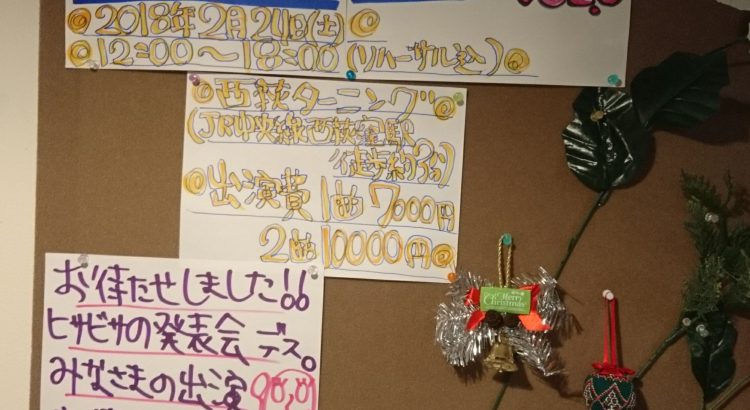 ◎2018年2月24日(土)◎
◎12:00〜18:00(リハーサル込)◎
◎西荻ターニング◎
(JR中央線西荻窪駅
徒歩約3分)
◎出演費 1曲 7000円
2曲 10000円◎
お待たせしました!!
ヒサビサの発表会デス。
みなさまの出演
Merry
Christmas